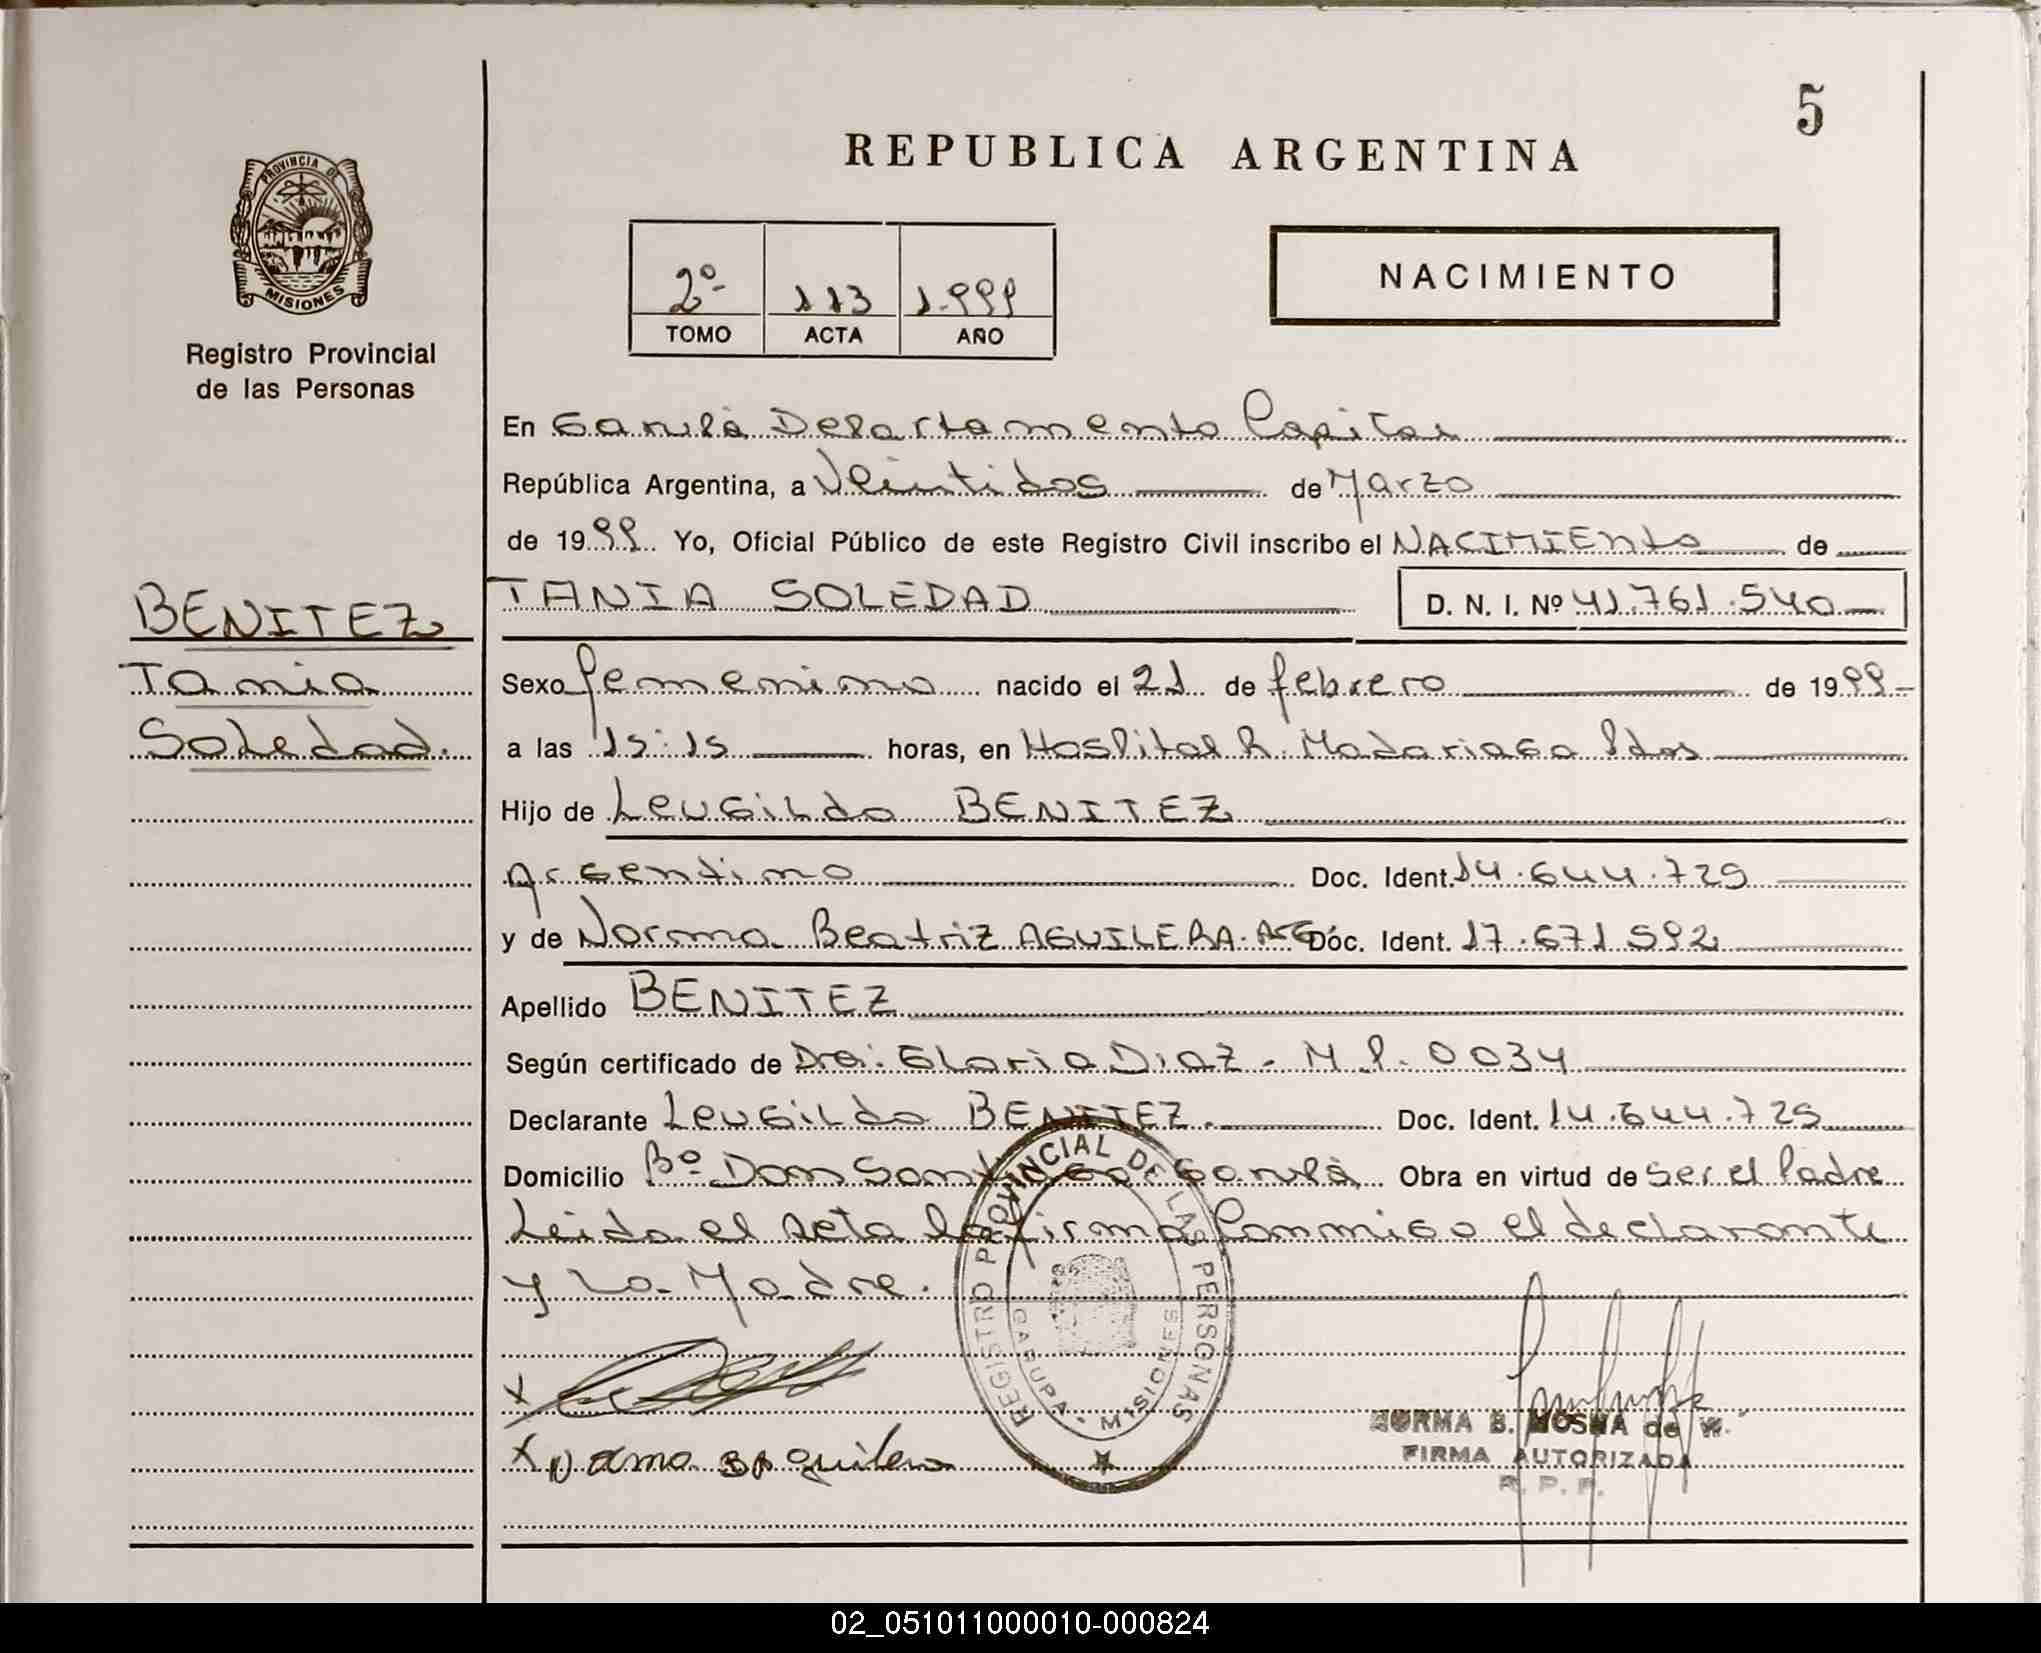 5
REPUBLICA ARGENTINA
PROVINCIA DE
MISIONES
Registro Provincial
de las Personas
2º 113 1.999
TOMO ACTA AÑO
NACIMIENTO
En Garupá Departamento Capital
República Argentina, a Veintidos de Marzo
de 1999 Yo, Oficial Público de este Registro Civil inscribo el NACIMIENTO de
BENITEZ
TANIA SOLEDAD D. N. I. Nº 41.761.540
Tania
Sexo femenino nacido el 21 de febrero de 1999
Soledad.
a las 15:15 horas, en Hospital R. Madariaga Pdas
Hijo de Leugildo BENITEZ
Argentino Doc. Ident. 14.644.729
y de Norma Beatriz AGUILERA. ARG Doc. Ident. 17.671.592
Apellido BENITEZ
Según certificado de Dra: Gloria DIAZ - M.P. 0034
Declarante Leugildo BENITEZ. Doc. Ident. 14.644.729
Domicilio Bº Don Santiago Garupá Obra en virtud de ser el Padre
Leida el acta la firma Conmigo el declarante
y La Madre.
REGISTRO PROVINCIAL DE LAS PERSONAS
GARUPA - MISIONES
X
X Norma B Aguilera
NORMA B. MOSNA de W.
FIRMA AUTORIZADA
R. P. P.
02_051011000010-000824